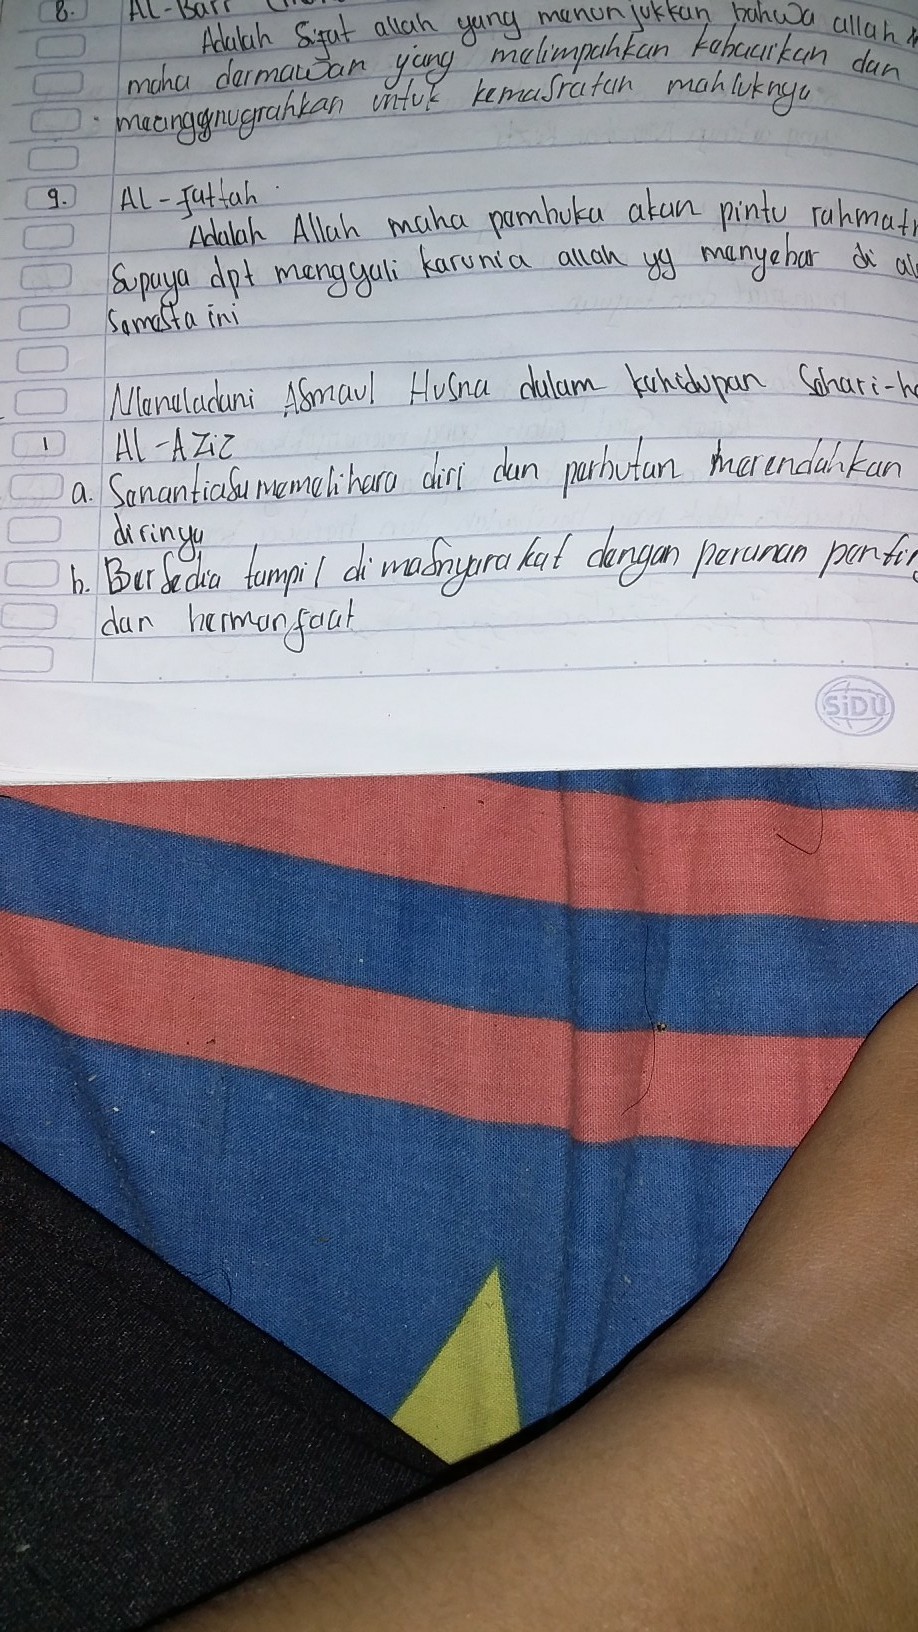 8. Al-Barr
Adalah Sifat allah yang menunjukkan bahwa allah
maha dermawan yang melimpahkan kebaikan dan
menganugrahkan untuk kemasratan mahluknya
9. Al-Fattah
Adalah Allah maha pembuka akan pintu rahmat
Supaya dpt menggali karunia allah yg menyebar di
Semesta ini
Meneladani Asmaul Husna dalam kehidupan Sehari-
1 Al-Aziz
a. Senantiasa memelihara diri dan perbutan merendahkan
dirinya
b. Bersedia tampil di masnyarakat dengan peranan
dan bermanfaat
SiDU